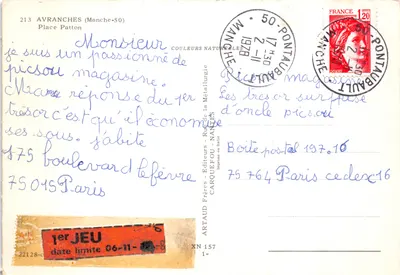 213 AVRANCHES (Manche-50)
Place Patton
COULEURS NATURELLES
Monsieur
je suis un passionné de
picsou magazine.
Ma réponse du 1er
trésor c'est qu'il économise
ses sous. j'abite
175 boulevard lefévre
75015 Paris
1er JEU
date limite 06-11-
22128-
XN 157
1-
ARTAUD Frères - Editeurs - Rue de la Métallurgie
CARQUEFOU - NANTES
50-PONTAUBAULT
17H30
2-11
1978
MANCHE
50-PONTAUBAULT
MANCHE
FRANCE
1,20
picsou magazine
Les trésor surprise
d'oncle picsou
Boite postal 197.16
75764 Paris cedex 16